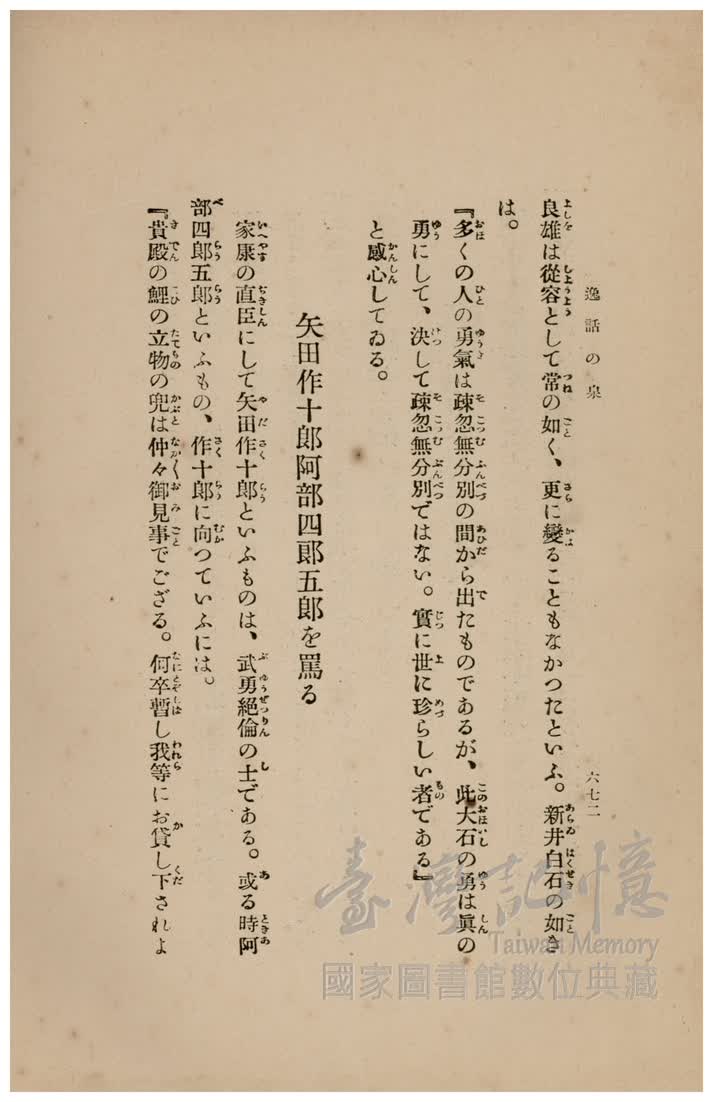 逸話の泉
六七二
良雄は從容として常の如く、更に變ることもなかつたといふ。新井白石の如き
は。
『多くの人の勇氣は疎忽無分別の間から出たものであるが、此大石の勇は眞の
勇にして、決して疎忽無分別ではない。實に世に珍らしい者である』
と感心してゐる。
矢田作十郎阿部四郎五郎を罵る
家康の直臣にして矢田作十郎といふものは、武勇絶倫の士である。或る時阿
部四郎五郎といふもの、作十郎に向つていふには。
『貴殿の鯉の立物の兜は仲々御見事でござる。何卒暫し我等にお貸し下されよ
臺灣記憶
Taiwan Memory
國家圖書館數位典藏